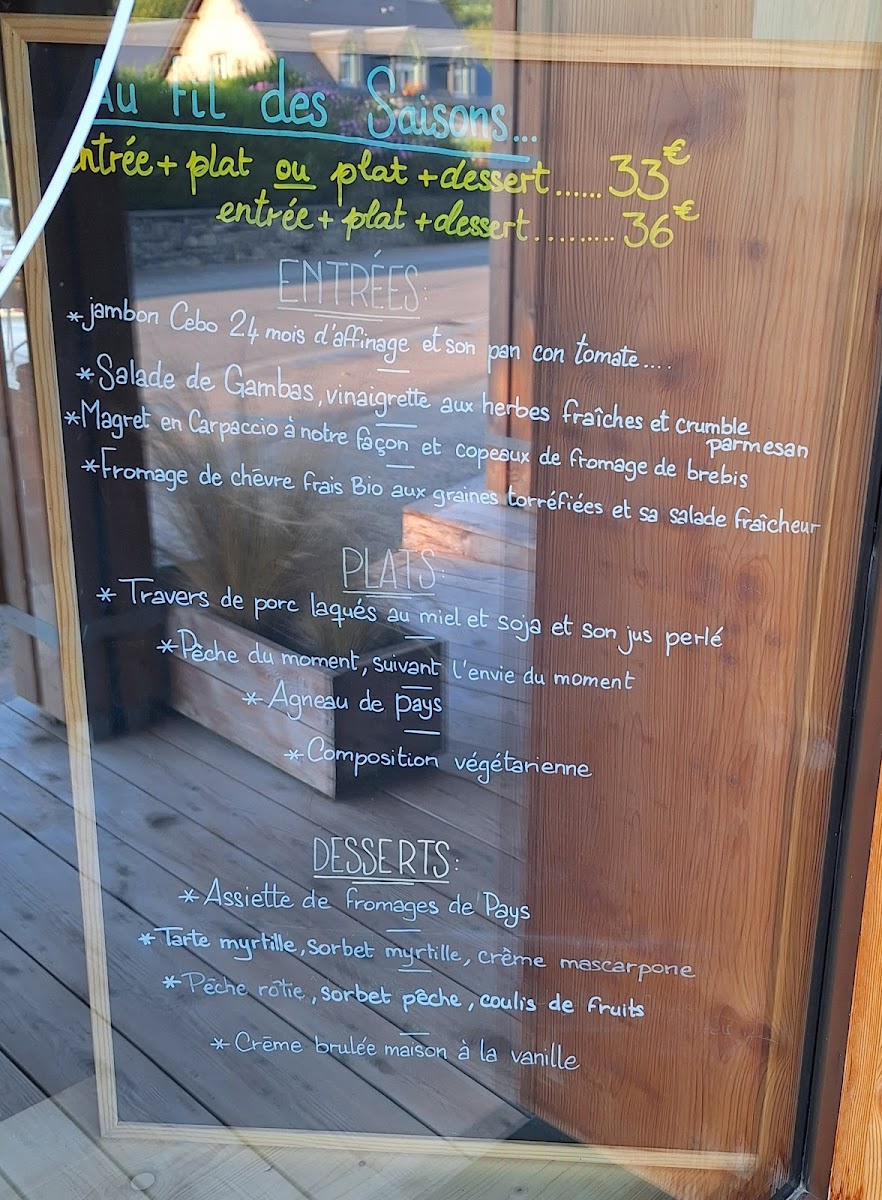 Au fil des Saisons...
entrée + plat ou plat + dessert ...... 33€
entrée + plat + dessert .......... 36€
ENTRÉES:
* jambon Cebo 24 mois d'affinage et son pan con tomate ....
* Salade de Gambas, vinaigrette aux herbes fraîches et crumble
parmesan
* Magret en Carpaccio à notre façon et copeaux de fromage de brebis
* Fromage de chèvre frais Bio aux graines torréfiées et sa salade fraîcheur
PLATS:
* Travers de porc laqués au miel et soja et son jus perlé
* Pêche du moment, suivant l'envie du moment
* Agneau de pays
* Composition végétarienne
DESSERTS:
* Assiette de fromages de Pays
* Tarte myrtille, sorbet myrtille, crême mascarpone
* Pêche rôtie, sorbet pêche, coulis de fruits
* Crême brulée maison à la vanille